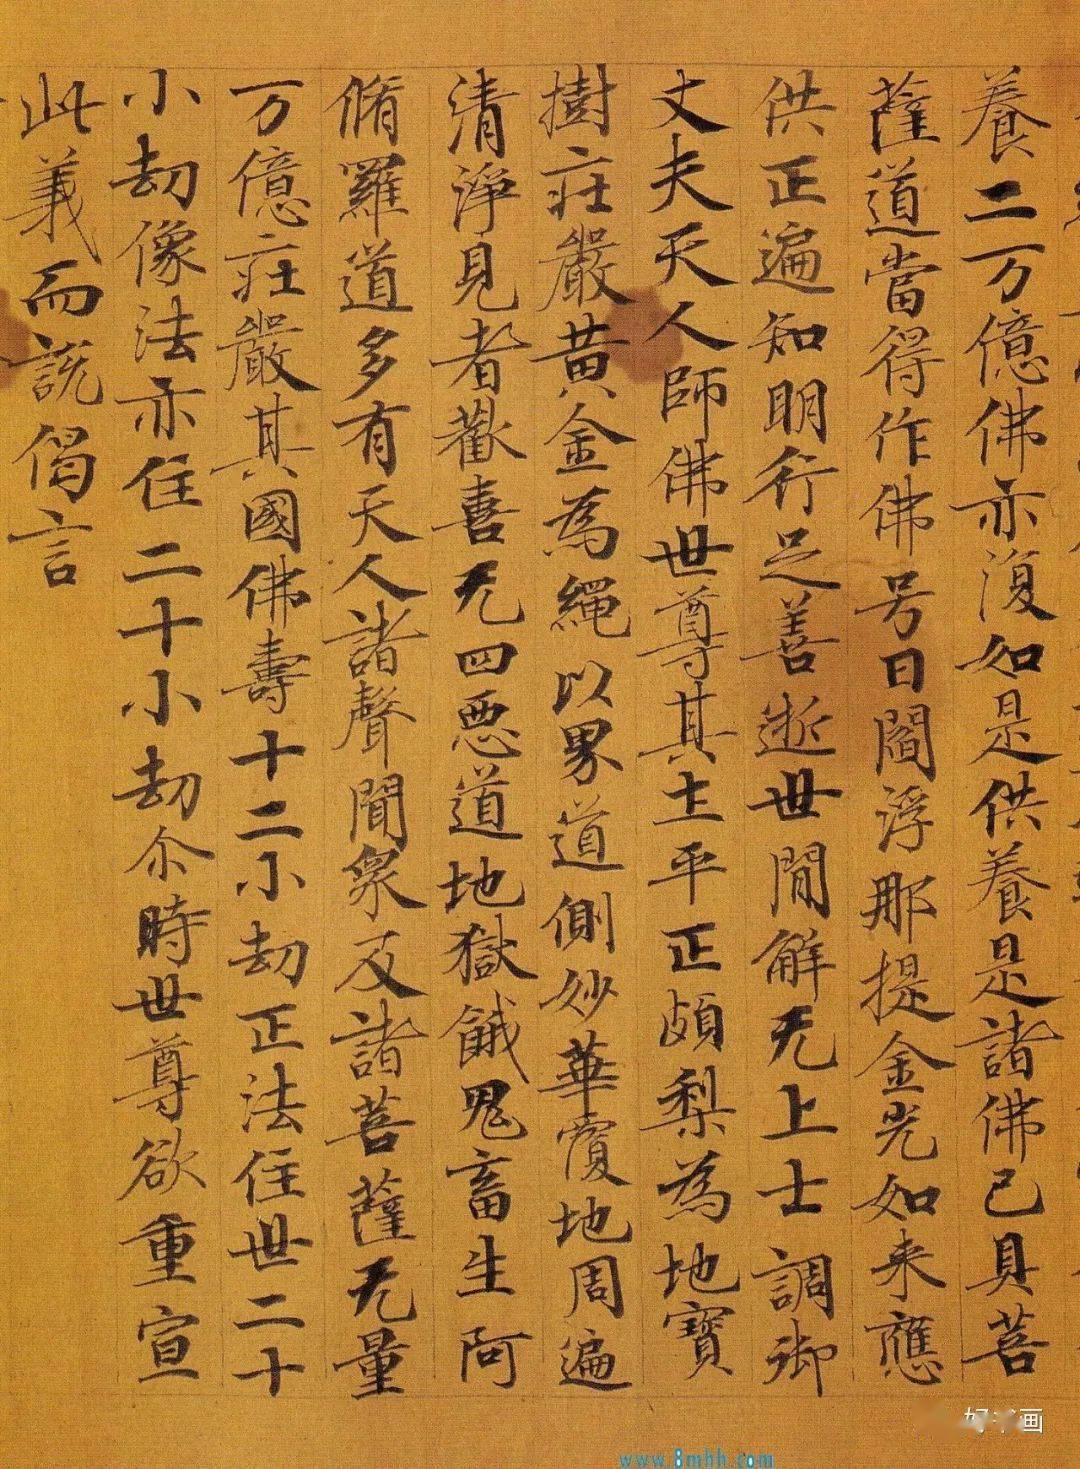 養二万億佛亦復如是供養是諸佛已具菩
薩道當得作佛号曰閻浮那提金光如来應
供正遍知明行足善逝世間解无上士調御
丈夫天人師佛世尊其土平正頗梨為地寶
樹莊嚴黄金為繩以界道側妙華覆地周遍
清淨見者歡喜无四惡道地獄餓鬼畜生阿
脩羅道多有天人諸聲聞衆及諸菩薩无量
万億莊嚴其國佛壽十二小劫正法住世二十
小劫像法亦住二十小劫尒時世尊欲重宣
此義而說偈言
www.8mhh.com